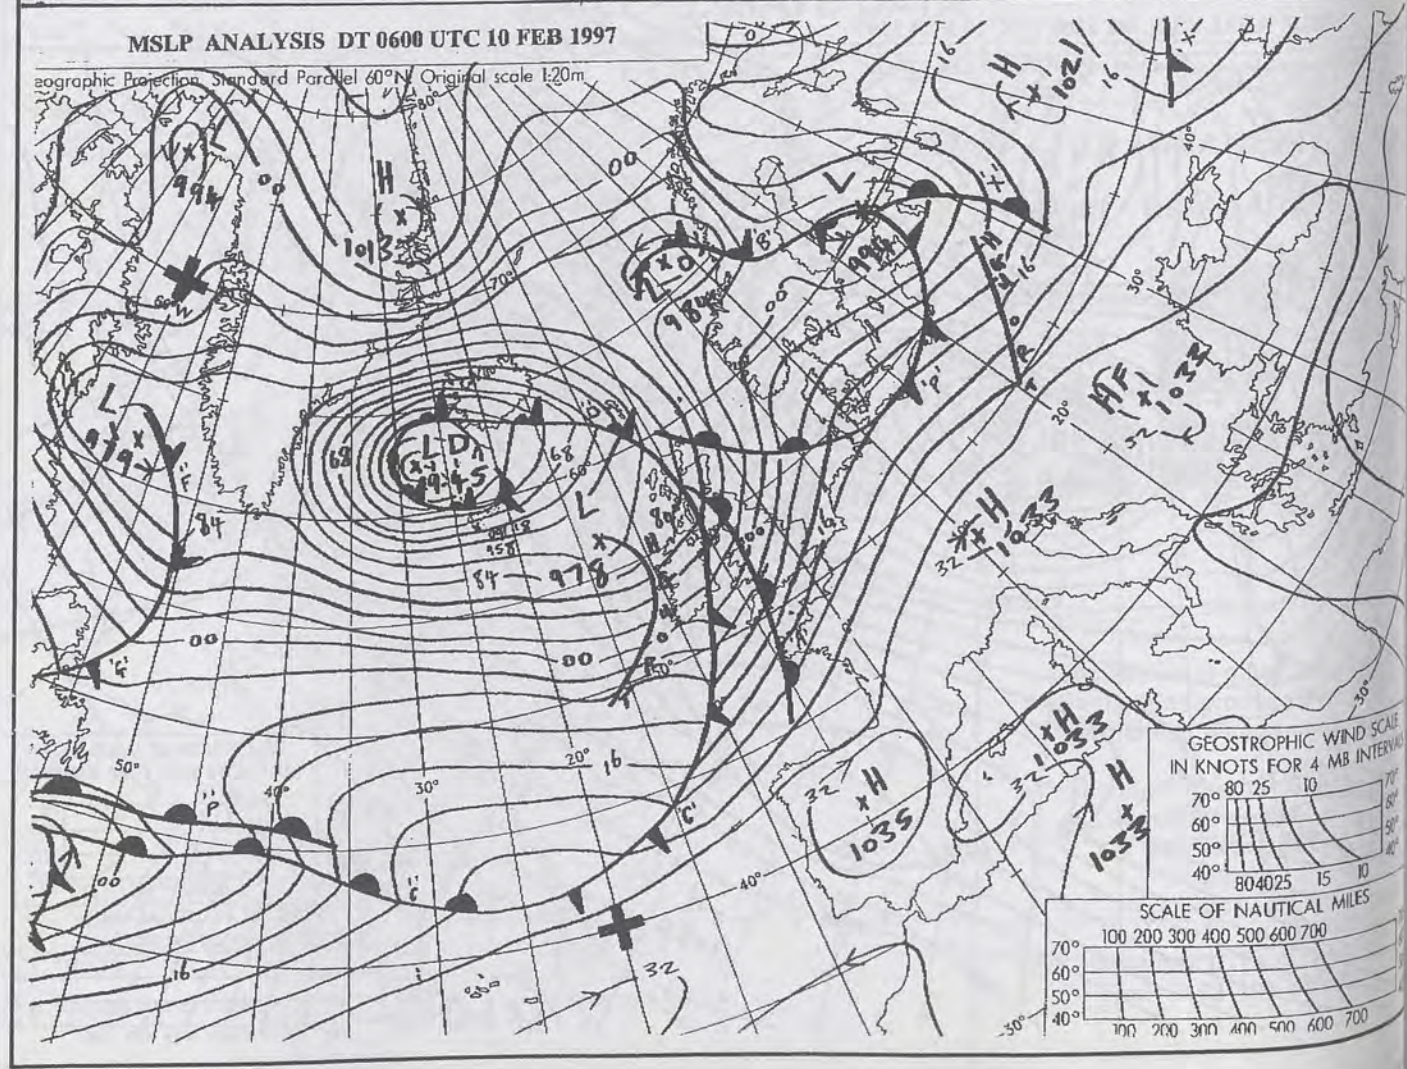 MSLP ANALYSIS DT 0600 UTC 10 FEB 1997
eographic Projection Standard Parallel 60°N Original scale 1:20m
80°
0
16
H
1021
16
40°
L
994
00
H
1013
00
L
'B'
70°
60°W
L
984
00
16
30°
H
1033
32
20°
'P'
L
979
'F'
84
68
L D
945
68
60°
L
978
84
958
80
16
H
1033
32
00
00
50°
'G'
50°
'P'
40°
30°
20°
16
'C'
'C'
00
16
40°
32
H
1035
32
H
1033
32
H
1033
30°
30°
GEOSTROPHIC WIND SCALE
IN KNOTS FOR 4 MB INTERVALS
80 25 10
70°
60°
50°
40°
70°
60°
50°
40°
804025 15 10
SCALE OF NAUTICAL MILES
100 200 300 400 500 600 700
70°
60°
50°
40°
100 200 300 400 500 600 700